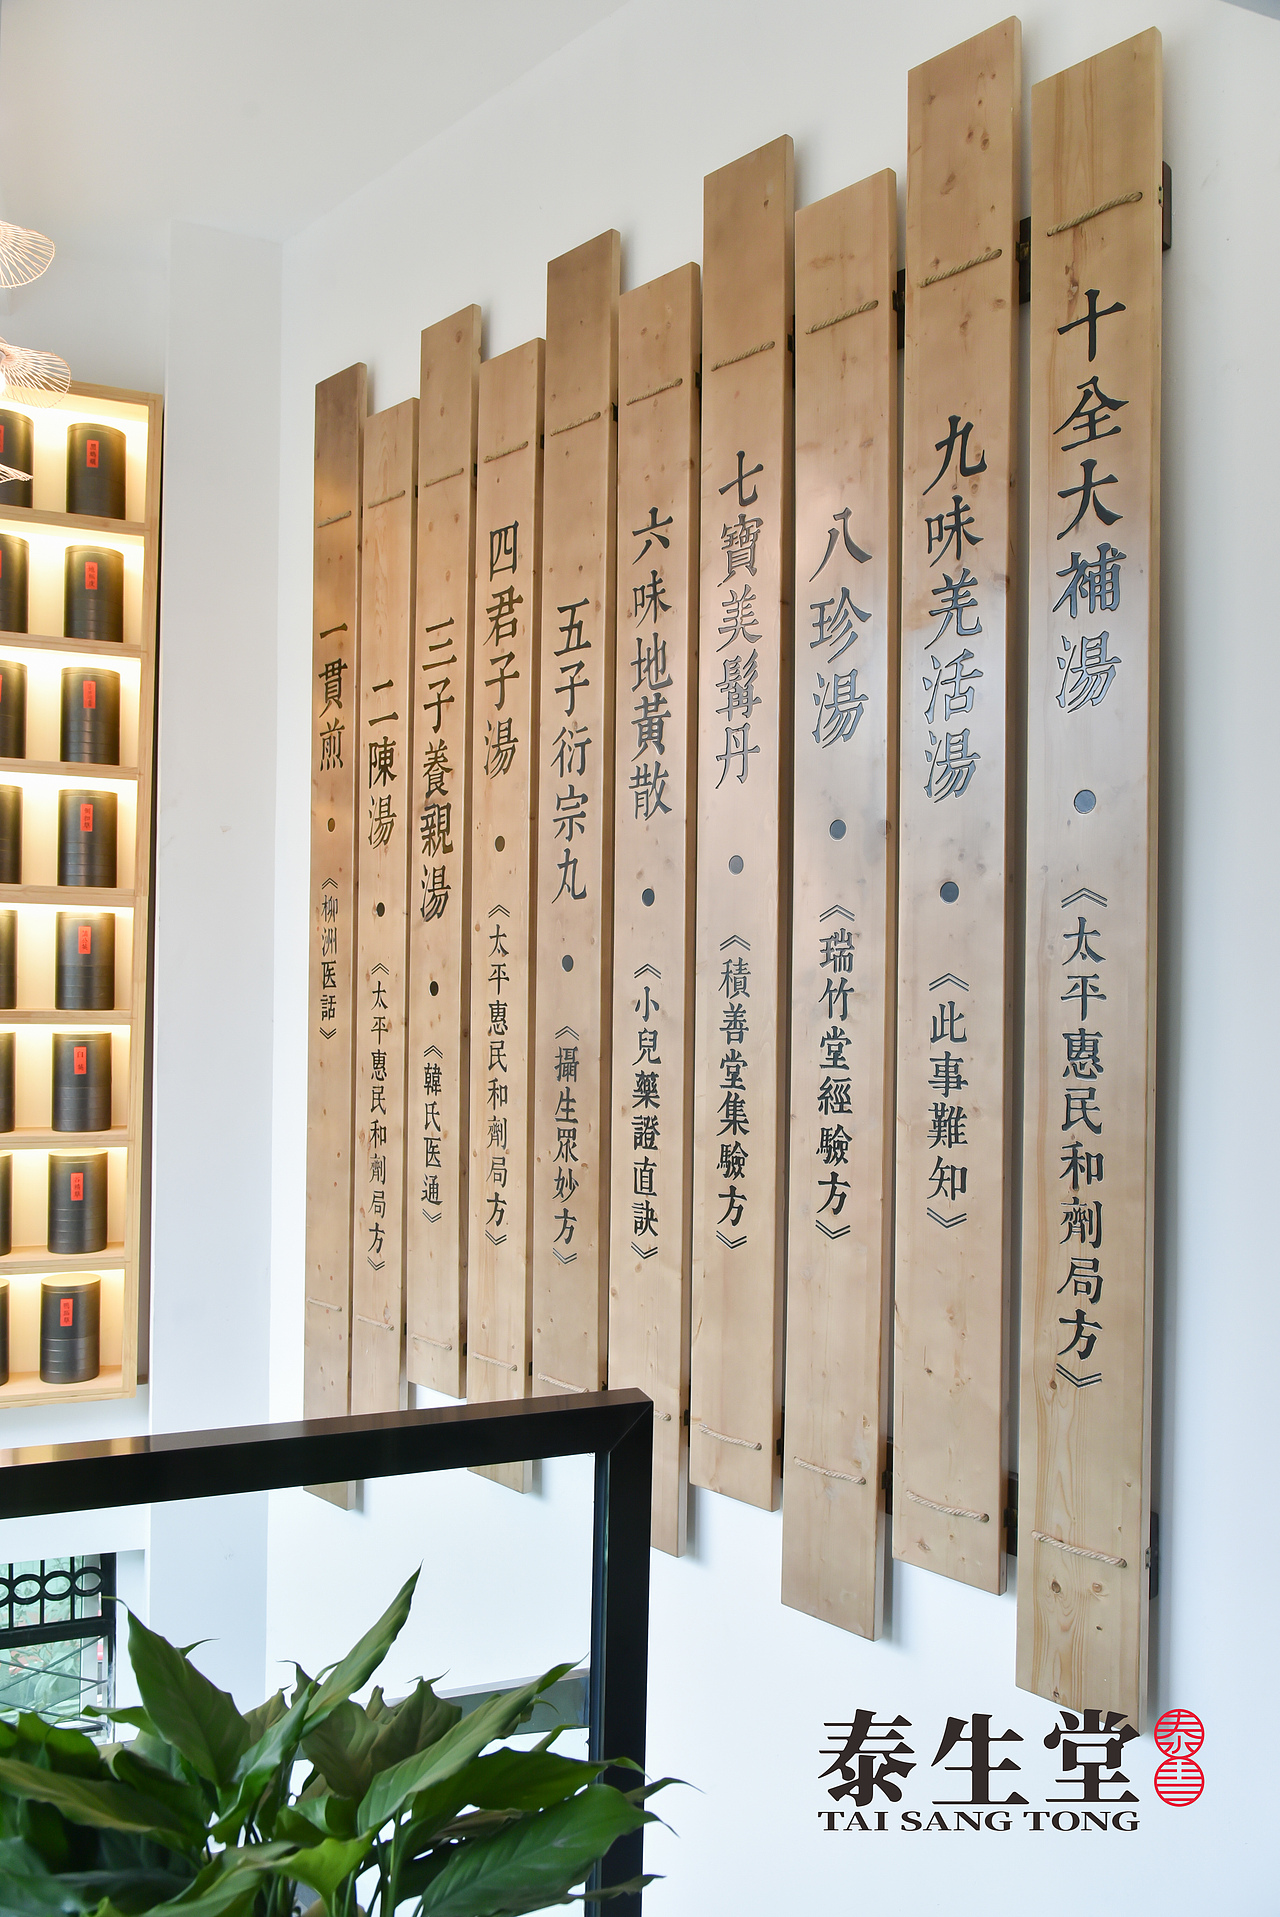 十全大補湯•《太平惠民和劑局方》
九味羌活湯•《此事難知》
八珍湯•《瑞竹堂經驗方》
七寶美髯丹•《積善堂集驗方》
六味地黃散•《小兒藥證直訣》
五子衍宗丸•《攝生眾妙方》
四君子湯•《太平惠民和劑局方》
三子養親湯•《韓氏医通》
二陳湯•《太平惠民和劑局方》
一貫煎•《柳洲医話》
泰生堂
TAI SANG TONG